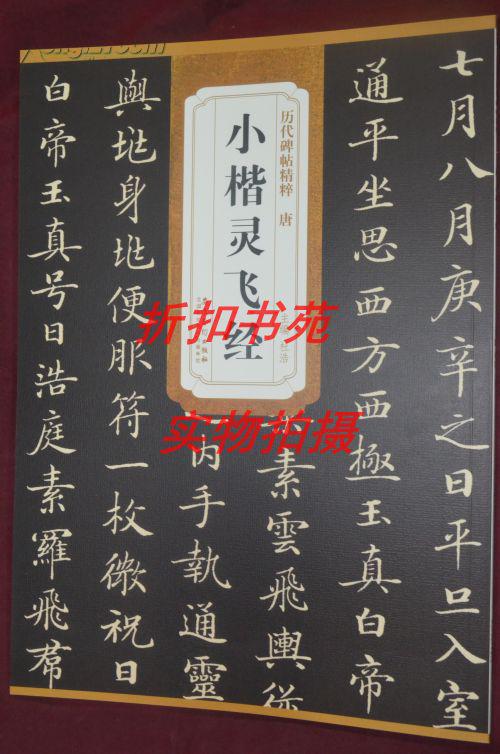 历代碑帖精粹 唐
小楷灵飞经
主编 杜浩
折扣书苑
实物拍摄
七月八月庚辛之日平旦入室
通平坐思西方西極玉真白帝
素雲飛輿從
内手執通靈
與地身地便服符一枚微祝日
白帝玉真号日浩庭素羅飛帬